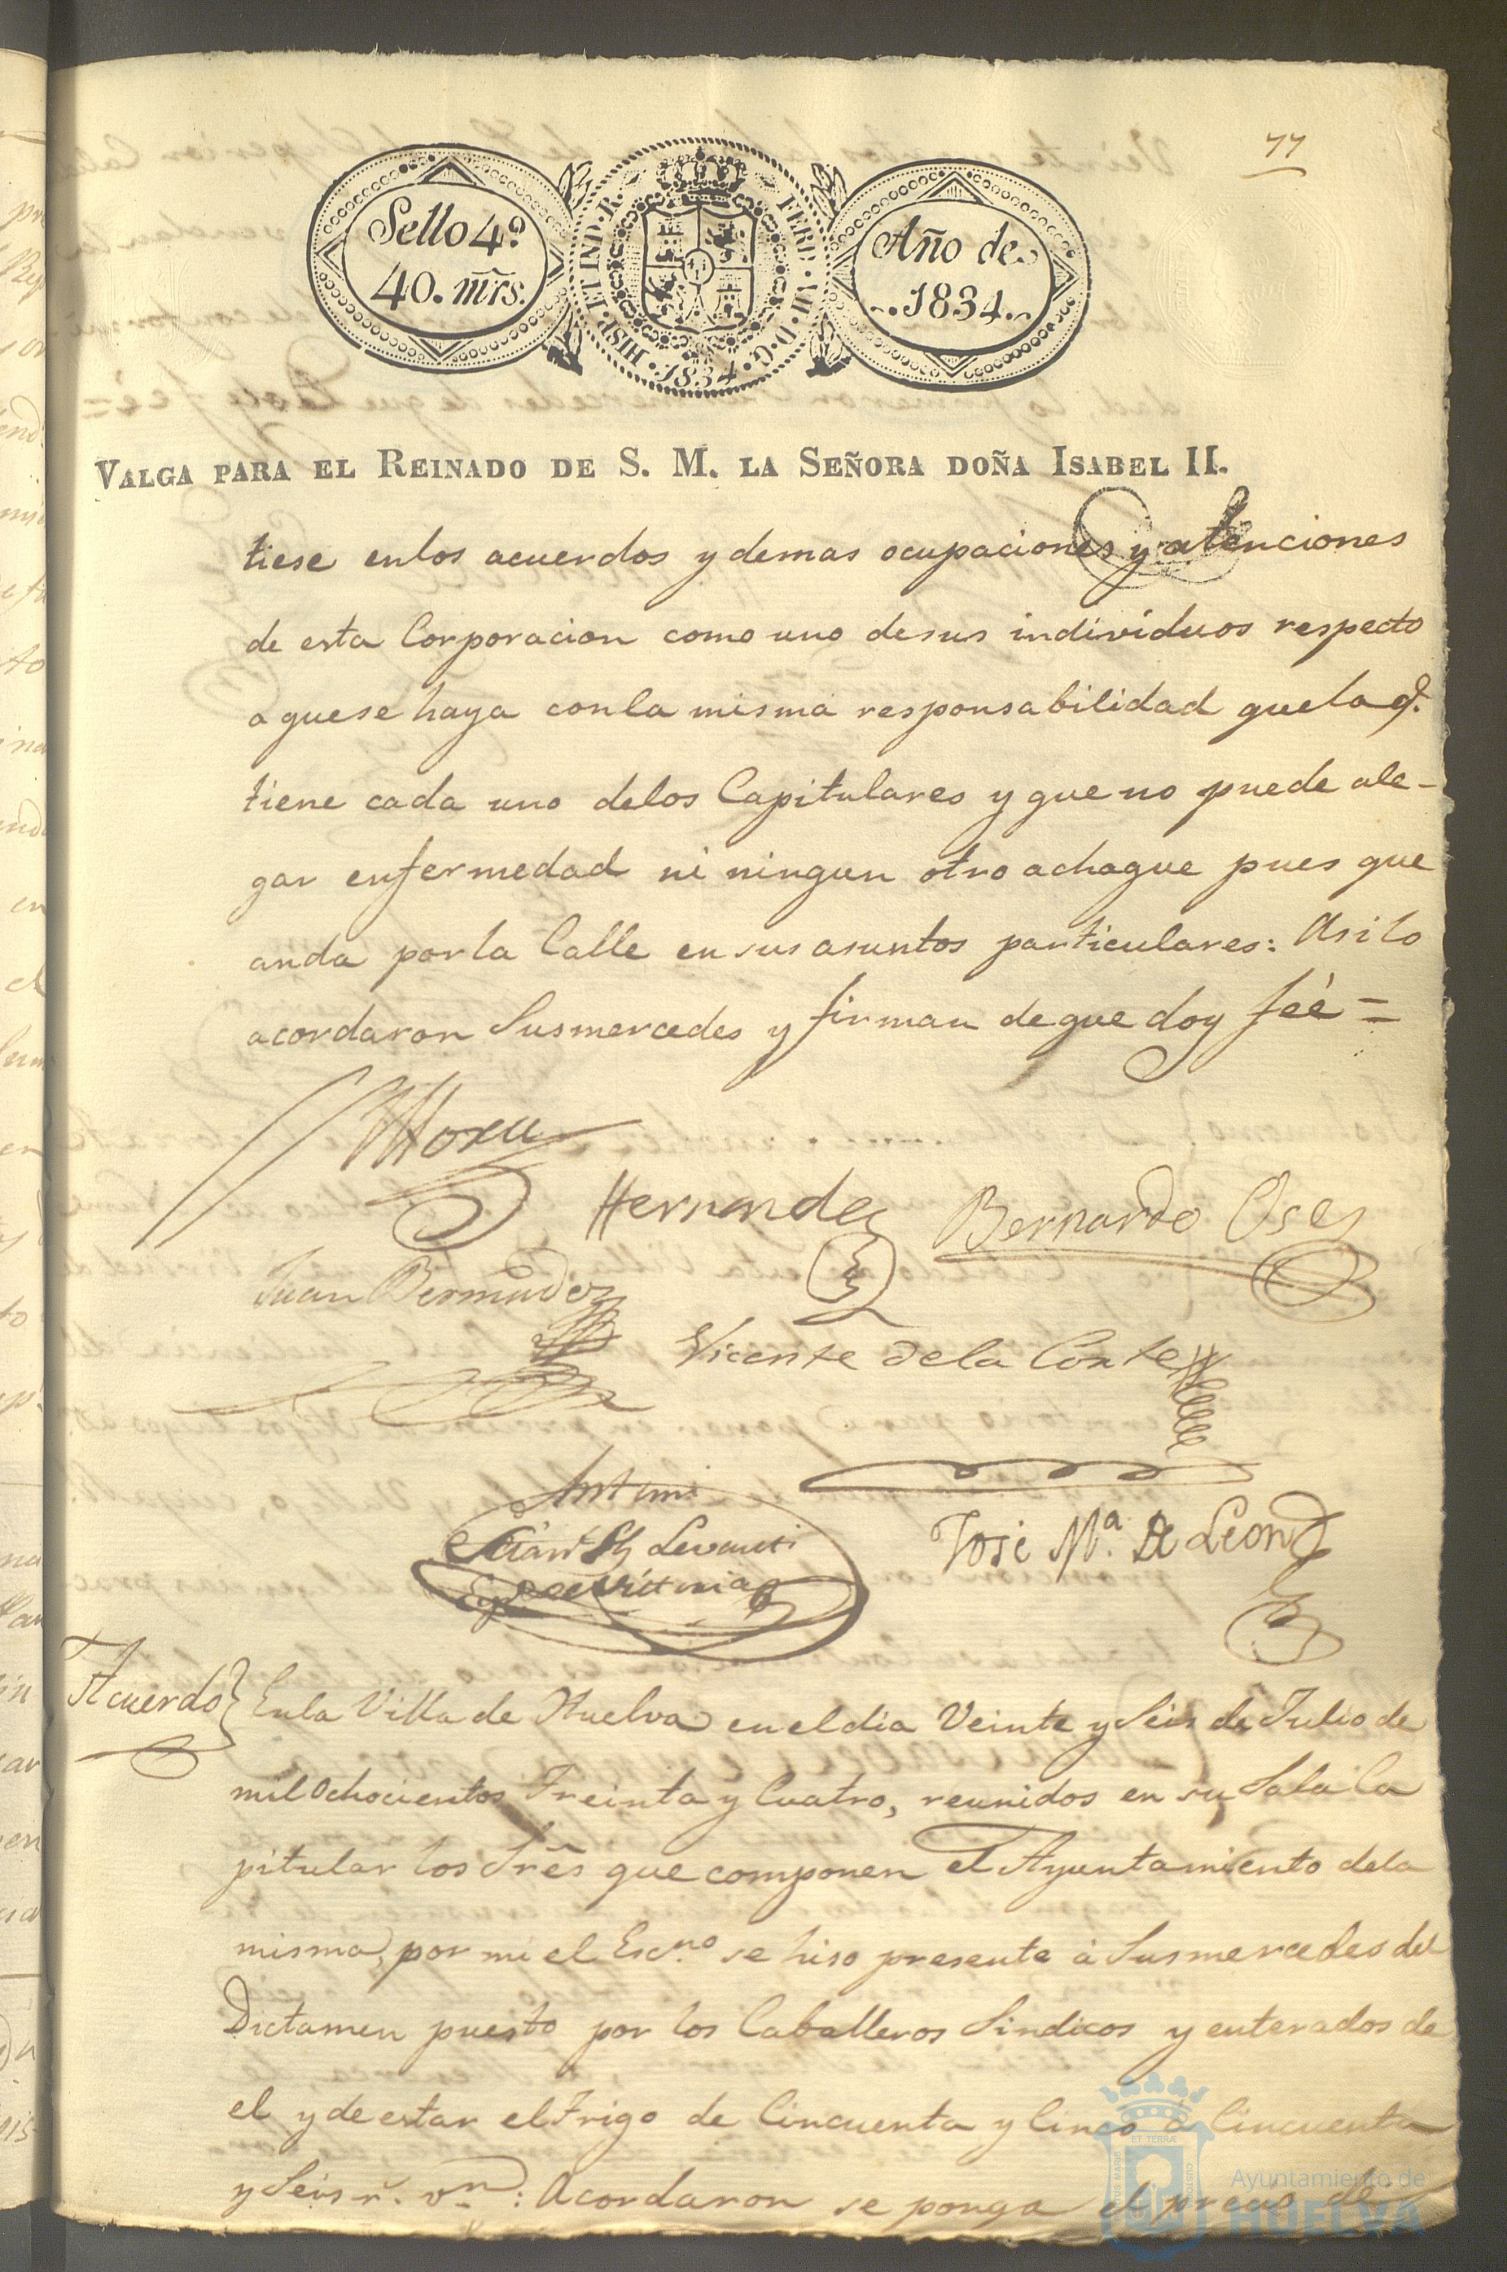 77
Sello 4º
40. mrs.
HISP. ET IND. R.
FERD. VII. D. G.
1834
Año de
1834.
VALGA PARA EL REINADO DE S. M. LA SEÑORA DOÑA ISABEL II.
tiese enlos acuerdos y demas ocupaciones y atenciones
de esta Corporacion como uno desus individuos respecto
aquese haya conla misma responsabilidad quela q.
tiene cada uno delos Capitulares y que no puede ale-
gar enfermedad ni ningun otro achaque pues que
anda porla Calle en sus asuntos particulares: Asi lo
acordaron Susmercedes y firman deque doy feé =
Mora
Hernandez
Bernardo Oses
Juan Bermudez
Vicente dela Corte
José Mª. De Leon
Acuerdo} Enla Villa de Huelva en eldia Veinte y Seis de Julio de
mil Ochocientos Treinta y Cuatro, reunidos en su Sala Ca
pitular los Srēs que componen el Ayuntamiento dela
misma, por mi el Escno. se hiso presente á Susmercedes del
Dictamen puesto por los Caballeros Sindicos y enterados de
el y de estar el Trigo de Cincuenta y Cinco á Cincuenta
y Seis r. vn: Acordaron se ponga el precio de
Ayuntamiento de
HUELVA